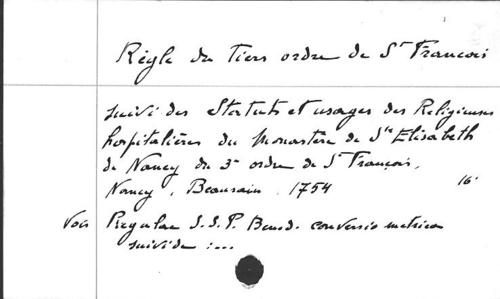 Règle du Tiers ordre de St François
suivi des Statuts et usages des Religieuses
hospitalières du Monastère de Ste Elisabeth
de Nancy du 3e ordre de St François.
Nancy, Beaurain 1754 16°
Vois Regulae S. S. P. Bened. conversio metrica
suivi de :...